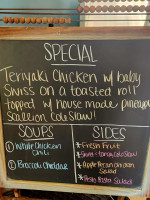 SPECIAL
Teriyaki Chicken w/ baby
Swiss on a toasted roll
topped w/ house made pineapple
scallion coleslaw!
SOUPS
① White Chicken
Chili
② Broccoli Cheddar
SIDES
* Fresh Fruit
* Sweet + tangy Coleslaw
* Apple Pecan Chicken
Salad
* Pesto Pasta Salad